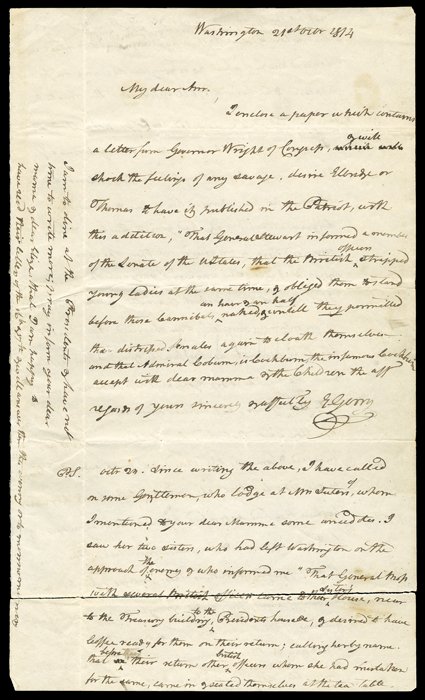 Washington 21st Octr 1814
My dear Ann,
I enclose a paper which contains
a letter from Governor Wright of Congress, & will
shock the feelings of any savage, desire Elbridge or
Thomas to have it published in the Patriot, with
this addition, "That General Stewart informed a member
of the Senate of the UStates, that the British officers strapped
young ladies at the same time, & obliged them to stand
before those Cannibals, naked an hour & an half untill they permitted
the distressed females again to cloath themselves
and that Admiral Coburn, is Cockburn, the infamous Cockburn
accept with dear mamma & the Children the aff
regards of yours sincerely & affecty EGerry
PS. octr 24. Since writing the above, I have called
on some Gentlemen, who lodge at Mrs Suter's, of whom
I mentioned to your dear Mamma some anecdotes. I
saw her two sisters, who had left Washington on the
approach of the enemy & who informed me "That General Ross
with several British officers came to their Suter's House, near
to the Treasury building, to the Presidents house & desired to have
Coffee ready for them on their return;
that before their return other British officers whom she had mistaken
for the same, came in & seated themselves at the tea table
I am to dine at the Presidents & have not
time to write more; pray inform your dear
mamma of dear Hope that I am happy to
have recd their letters of the